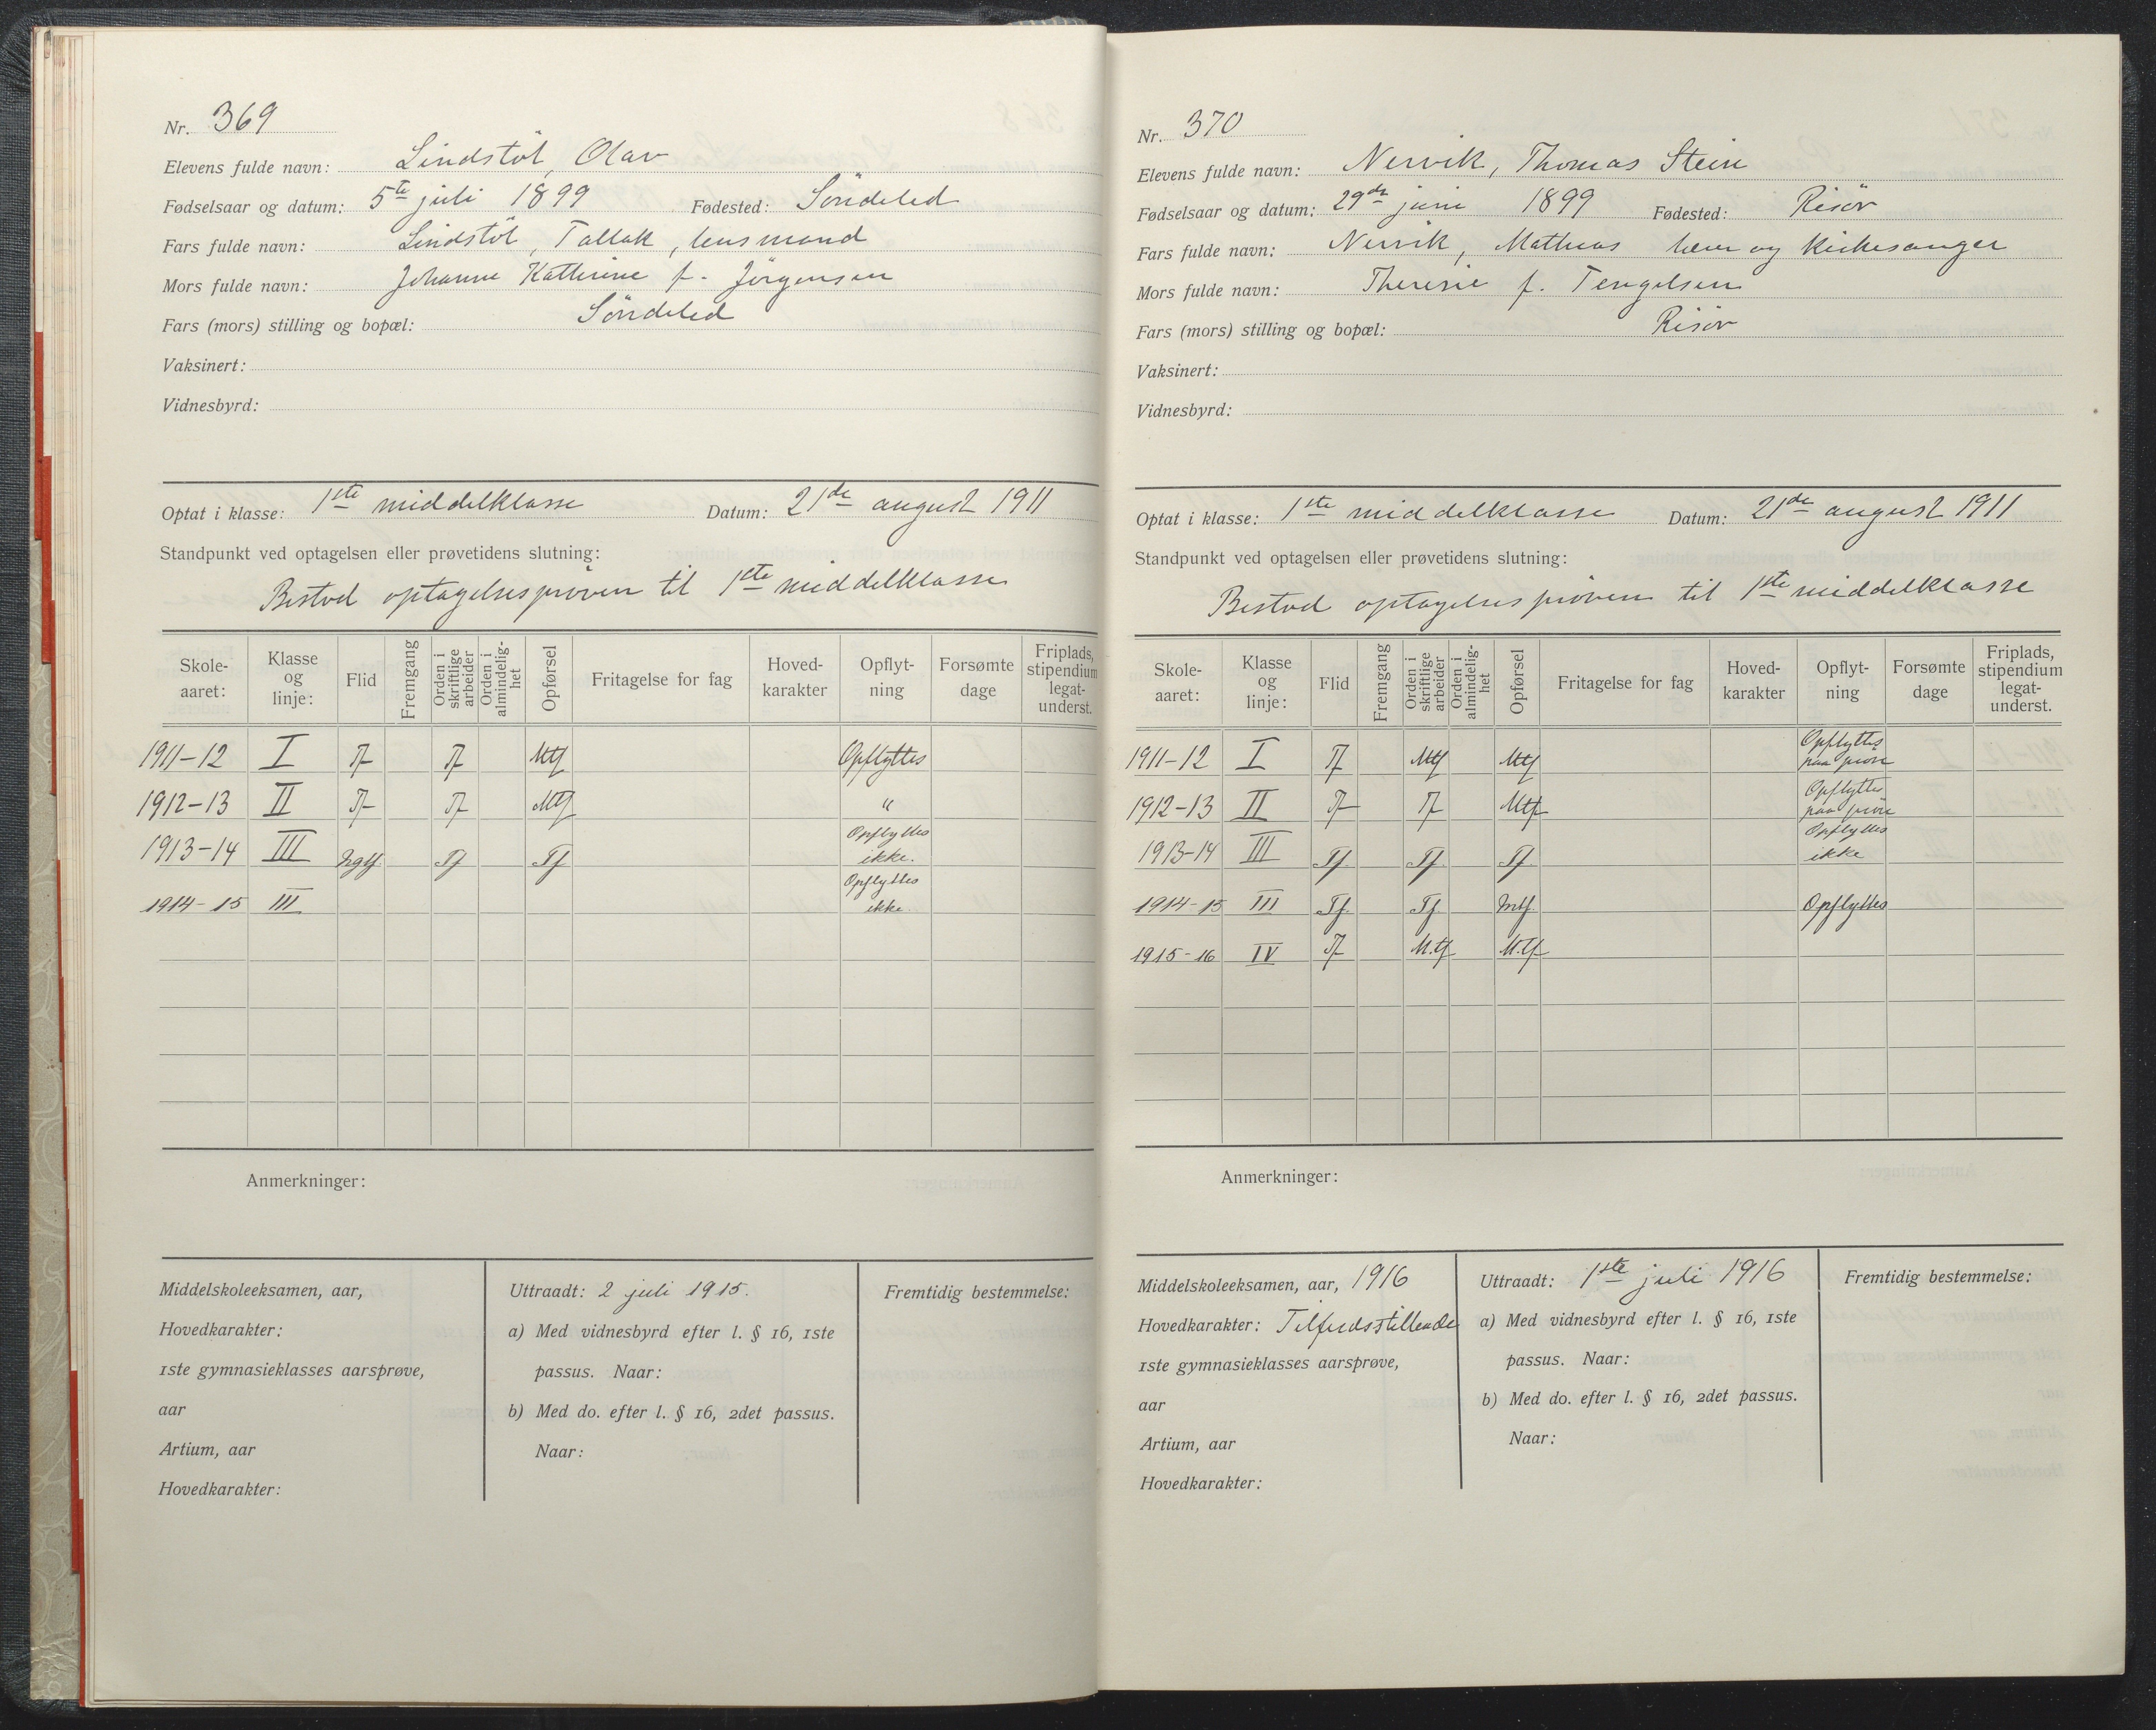 Nr. 369
Elevens fulde navn: Lindstøl, Olav
Fødselsaar og datum: 5te juli 1899 Fødested: Söndeled
Fars fulde navn: Lindstøl, Tallak, lensmand
Mors fulde navn: Johanne Kathrine f. Jörgensen
Fars (mors) stilling og bopæl: Söndeled
Vaksinert:
Vidnesbyrd:
Optat i klasse: 1ste middelklasse Datum: 21de august 1911
Standpunkt ved optagelsen eller prøvetidens slutning:
Bestod optagelsesprøven til 1ste middelklasse
Skole-aaret: Klasse og linje: Flid Fremgang Orden i skriftlige arbeider Orden i almindelig-het Opførsel Fritagelse for fag Hoved-karakter Opflyt-ning Forsømte dage Friplads, stipendium legat-underst.
1911-12 I Tf Tf Mtf Opflyttes
1912-13 II Tf Tf Mtf "
1913-14 III Ngtf Tf Tf Opflyttes ikke.
1914-15 III Opflyttes ikke.
Anmerkninger:
Middelskoleeksamen, aar,
Hovedkarakter:
1ste gymnasieklasses aarsprøve,
aar
Artium, aar
Hovedkarakter:
Uttraadt: 2 juli 1915.
a) Med vidnesbyrd efter l. § 16, 1ste
passus. Naar:
b) Med do. efter l. § 16, 2det passus.
Naar:
Fremtidig bestemmelse:
Nr. 370
Elevens fulde navn: Nervik, Thomas Stein
Fødselsaar og datum: 29de juni 1899 Fødested: Risör
Fars fulde navn: Nervik, Mathias lærer og kirkesanger
Mors fulde navn: Therese f. Tengelsen
Fars (mors) stilling og bopæl: Risör
Vaksinert:
Vidnesbyrd:
Optat i klasse: 1ste middelklasse Datum: 21de august 1911
Standpunkt ved optagelsen eller prøvetidens slutning:
Bestod optagelsesprøven til 1ste middelklasse
Skole-aaret: Klasse og linje: Flid Fremgang Orden i skriftlige arbeider Orden i almindelig-het Opførsel Fritagelse for fag Hoved-karakter Opflyt-ning Forsømte dage Friplads, stipendium legat-underst.
1911-12 I Tf Mtf Mtf Opflyttes paa prøve
1912-13 II Tf Tf Mtf Opflyttes paa prøve
1913-14 III Tf. Tf. Tf. Opflyttes ikke
1914-15 III Tf. Tf. Mtf. Opflyttes
1915-16 IV Tf M.tf M.tf
Anmerkninger:
Middelskoleeksamen, aar, 1916
Hovedkarakter: Tilfredsstillende
1ste gymnasieklasses aarsprøve,
aar
Artium, aar
Hovedkarakter:
Uttraadt: 1ste juli 1916
a) Med vidnesbyrd efter l. § 16, 1ste
passus. Naar:
b) Med do. efter l. § 16, 2det passus.
Naar:
Fremtidig bestemmelse: